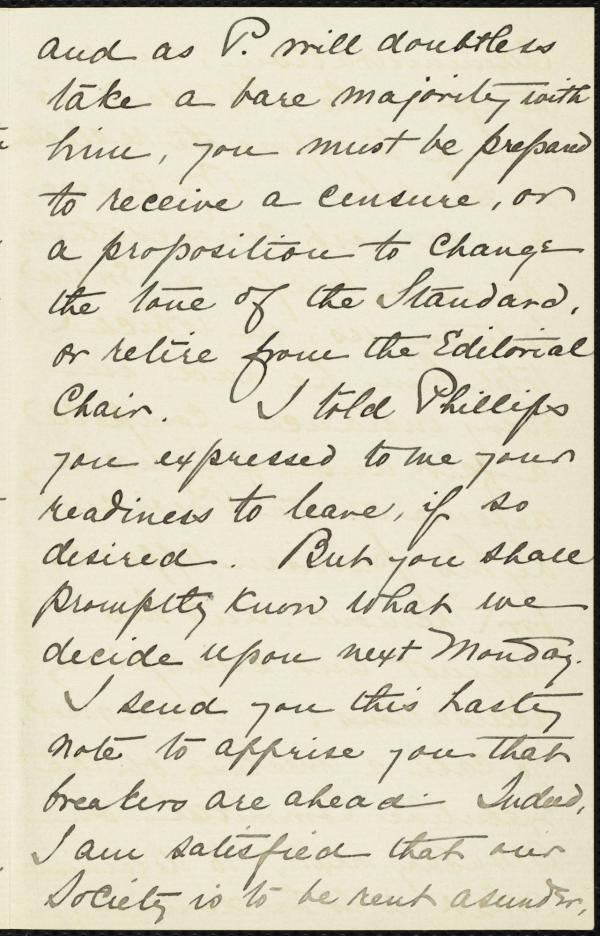 and as P. will doubtless
take a bare majority with
him, you must be prepared
to receive a censure, or
a proposition to change
the tone of the Standard,
or retire from the Editorial
Chair. I told Phillips
you expressed to me your
readiness to leave, if so
desired. But you shall
promptly know what we
decide upon next Monday.
I send you this hasty
note to apprise you that
breakers are ahead. Indeed,
I am satisfied that our
Society is to be rent asunder,